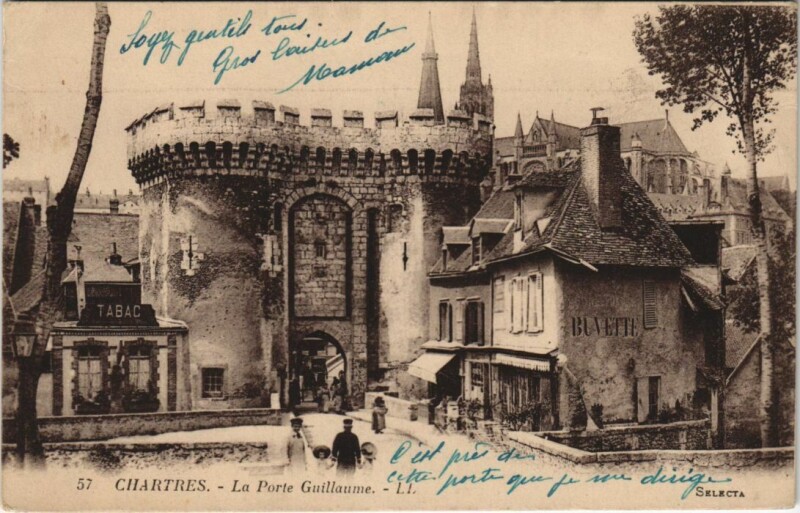 Soyez gentils tous.
Gros baisers de
Maman
TABAC
BUVETTE
C'est près de
cette porte que je me dirige
57 CHARTRES. - La Porte Guillaume. - LL
SELECTA